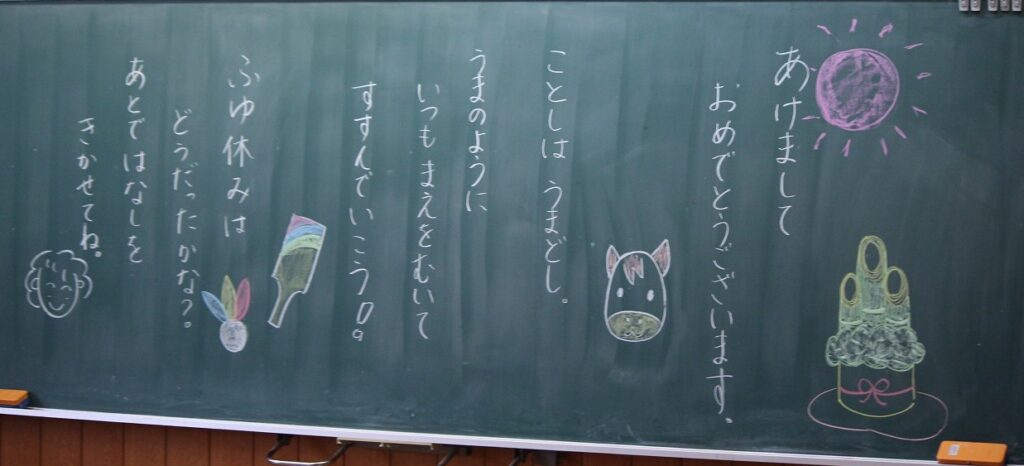 あけまして
おめでとうございます。
ことしは うまどし。
うまのように
いつもまえをむいて
すすんでいこう!。
ふゆ休みは
どうだったかな?。
あとではなしを
きかせてね。